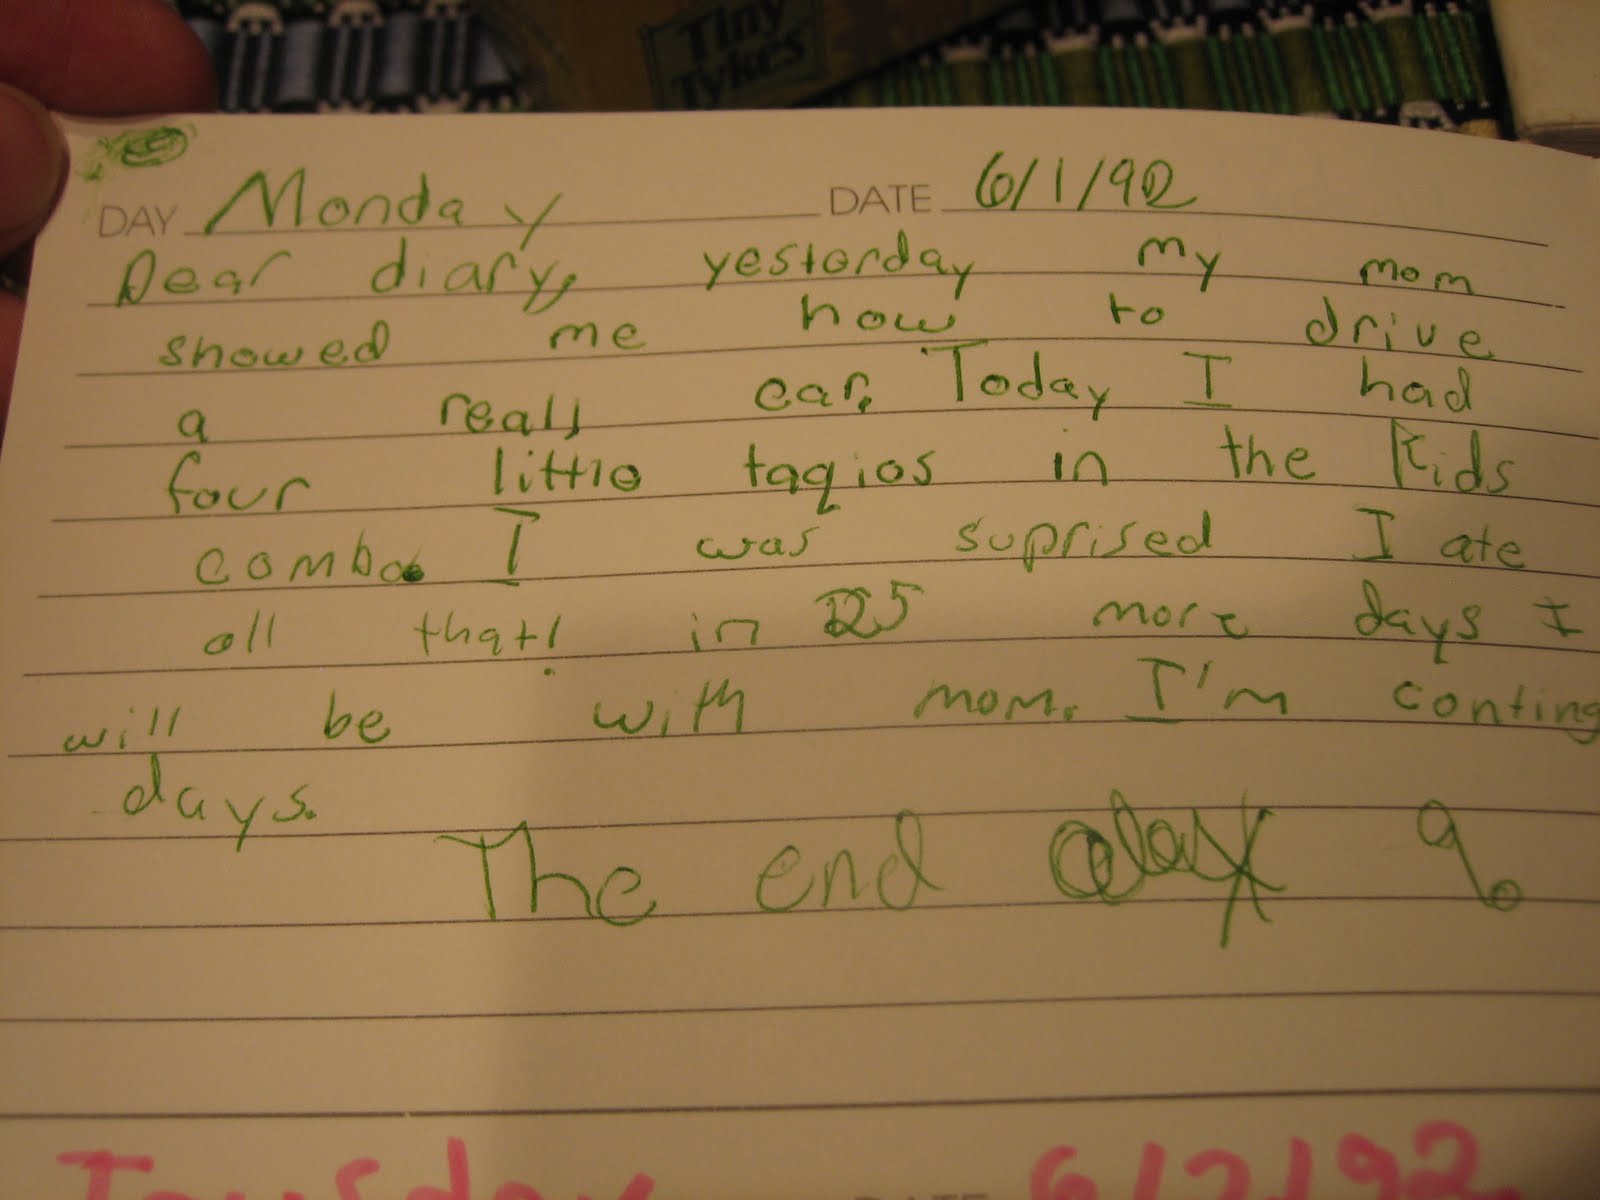 Tiny
Tykes
DAY Monday DATE 6/1/92
Dear diary, yesterday my mom
showed me how to drive
a reall car. Today I had
four little taqios in the Kids
combo. I was suprised I ate
all that! in 25 more days I
will be with mom. I'm conting
days.
The end alax 9.
Tuusday DATE 6/2/92